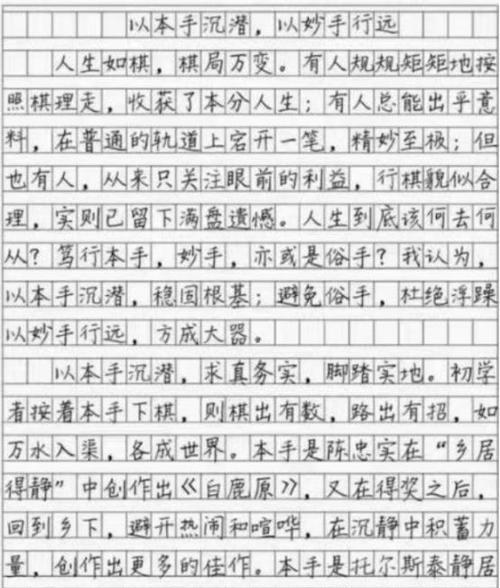 以本手沉潜，以妙手行远
人生如棋，棋局万变。有人规规矩矩地按
照棋理走，收获了本分人生；有人总能出乎意
料，在普通的轨道上宕开一笔，精妙至极；但
也有人，从来只关注眼前的利益，行棋貌似合
理，实则已留下满盘遗憾。人生到底该何去何
从？笃行本手，妙手，亦或是俗手？我认为，
以本手沉潜，稳固根基；避免俗手，杜绝浮躁
以妙手行远，方成大器。
以本手沉潜，求真务实，脚踏实地。初学
者按着本手下棋，则棋出有数，路出有招，如
万水入渠，各成世界。本手是陈忠实在“乡居
得静”中创作出《白鹿原》，又在得奖之后，
回到乡下，避开热闹和喧哗，在沉静中积蓄力
量，创作出更多的佳作。本手是托尔斯泰静居